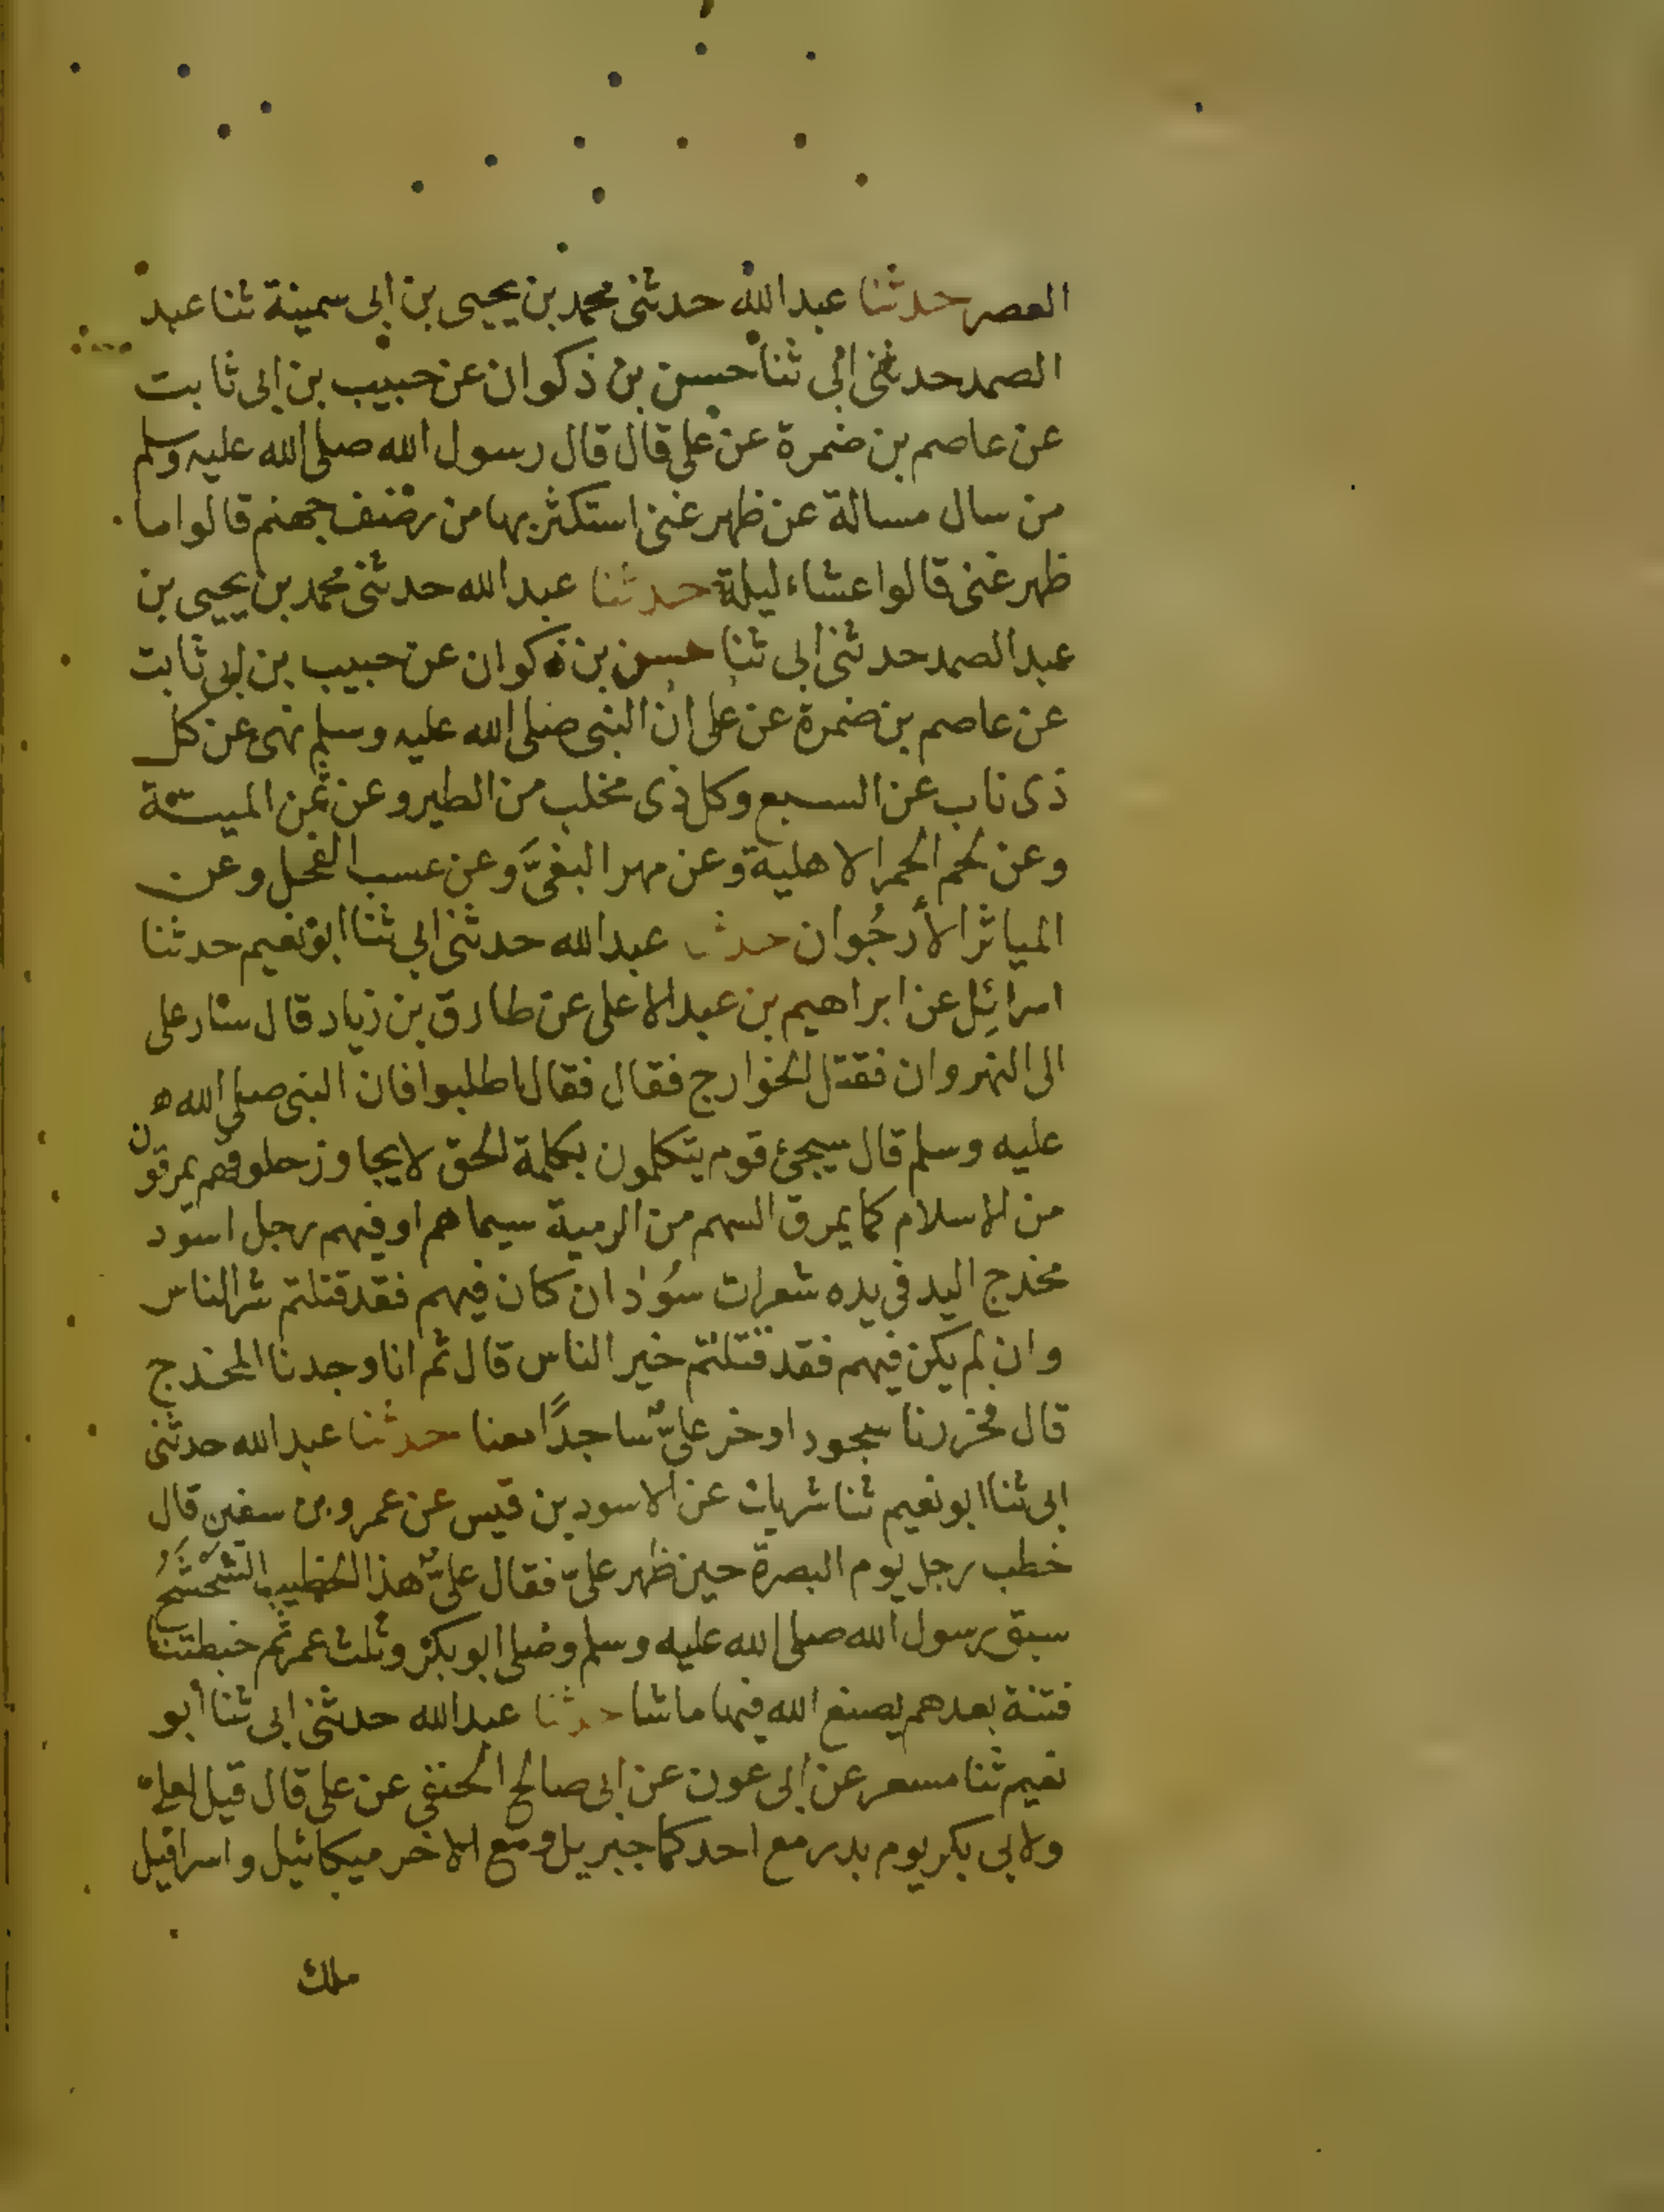 العصر حدثنا عبد الله حدثنى محمد بن يحيى بن ابى سمينة ثنا عبد
الصمد حدثنى ابى ثنا حسن بن ذكوان عن حبيب بن ابى ثابت
عن عاصم بن ضمرة عن على قال قال رسول الله صلى الله عليه وسلم
من سال مسالة عن ظهر غنى استكثر بها من رضف جهنم قالوا ما
ظهر غنى قالوا عشاء ليلة حدثنا عبد الله حدثنى محمد بن يحيى بن
عبد الصمد حدثنى ابى ثنا حسن بن ذكوان عن حبيب بن ابى ثابت
عن عاصم بن ضمرة عن على ان النبى صلى الله عليه وسلم نهى عن كل
ذى ناب عن السبع وكل ذى مخلب من الطير وعن ثمن الميتة
وعن لحم الحمر الاهلية وعن مهر البغىّ وعن عسب الفحل وعن
المياثر الأرجُوان حدثنا عبد الله حدثنى ابى ثنا ابو نعيم حدثنا
اسرائِل عن ابراهيم بن عبد الاعلى عن طارق بن زياد قال سار على
الى النهروان فقتل الخوارج فقال فقال اطلبوا فان النبى صلى الله
عليه وسلم قال سيجئ قوم يتكلمون بكلمة الحق لا يجاوز حلوقهم يمرقون
من الاسلام كما يمرق السهم من الرمية سيماهم او فيهم رجل اسود
مخدج اليد فى يده شعرات سُود ان كان فيهم فقد قتلتم شر الناس
وان لم يكن فيهم فقد قتلتم خير الناس قال ثم انا وجدنا المخدج
قال فخررنا سجودا وخر علىٌّ ساجدًا معنا حدثنا عبد الله حدثنى
ابى ثنا ابو نعيم ثنا شريك عن الاسود بن قيس عن عمرو بن سفين قال
خطب رجل يوم البصرة حين ظهر علىّ فقال علىٌّ هذا الخطيب الشَحْشَحُ
سبق رسول الله صلى الله عليه وسلم وصلى ابو بكر وثلث عمر ثم خبطتنا
فتنة بعدهم يصنع الله فيها ما شا حدثنا عبد الله حدثنى ابى ثنا أبو
نعيم ثنا مسعر عن ابى عون عن ابى صالح الحنفى عن على قال قيل لعلى
ولابى بكر يوم بدر مع احدكما جبريل ومع الاخر ميكائيل واسرافيل
ملك